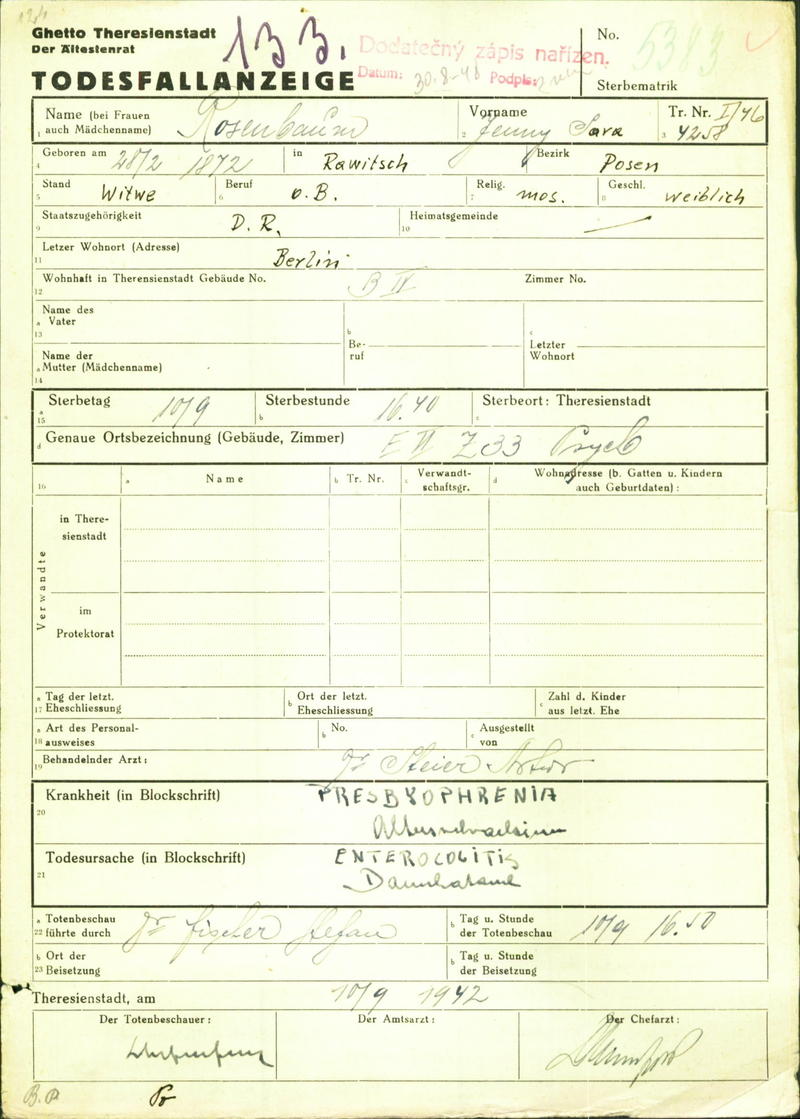 Ghetto Theresienstadt
Der Ältestenrat
133.
Dodatečný zápis nařízen.
Datum: 30.8-48 Podpis:
No. 5383
TODESFALLANZEIGE
Sterbematrik
Name (bei Frauen auch Mädchenname) Rosenbaum
Vorname Jenny Sara
Tr. Nr. I/46
1 2 3 4258
4 Geboren am 28/2 1872 in Rawitsch Bezirk Posen
5 Stand Witwe
6 Beruf o.B.
7 Relig. mos.
8 Geschl. weiblich
9 Staatszugehörigkeit D.R.
10 Heimatsgemeinde
11 Letzer Wohnort (Adresse) Berlin
12 Wohnhaft in Therensienstadt Gebäude No. B IV Zimmer No.
13 a Name des Vater
b Beruf
c Letzter Wohnort
14 a Name der Mutter (Mädchenname)
15 a Sterbetag 10/9
b Sterbestunde 16.40
c Sterbeort: Theresienstadt
d Genaue Ortsbezeichnung (Gebäude, Zimmer) E VI Z 33 Psych
16 a Name b Tr. Nr. c Verwandtschaftsgr. d Wohnadresse (b. Gatten u. Kindern auch Geburtdaten) :
Verwandte
in Theresienstadt
im Protektorat
17 a Tag der letzt. Eheschliessung
b Ort der letzt. Eheschliessung
c Zahl d. Kinder aus letzt. Ehe
18 a Art des Personalausweises
b No.
c Ausgestellt von
19 Behandelnder Arzt: Dr Steier Artur
20 Krankheit (in Blockschrift) PRESBYOPHRENIA
Altersschwachsinn
21 Todesursache (in Blockschrift) ENTEROCOLITIS
Darmkatarrh
22 a Totenbeschau führte durch Dr Fischer Stefan
b Tag u. Stunde der Totenbeschau 10/9 16.50
23 b Ort der Beisetzung
b Tag u. Stunde der Beisetzung
Theresienstadt, am 10/9 1942
Der Totenbeschauer:
Der Amtsarzt:
Der Chefarzt:
B.P.